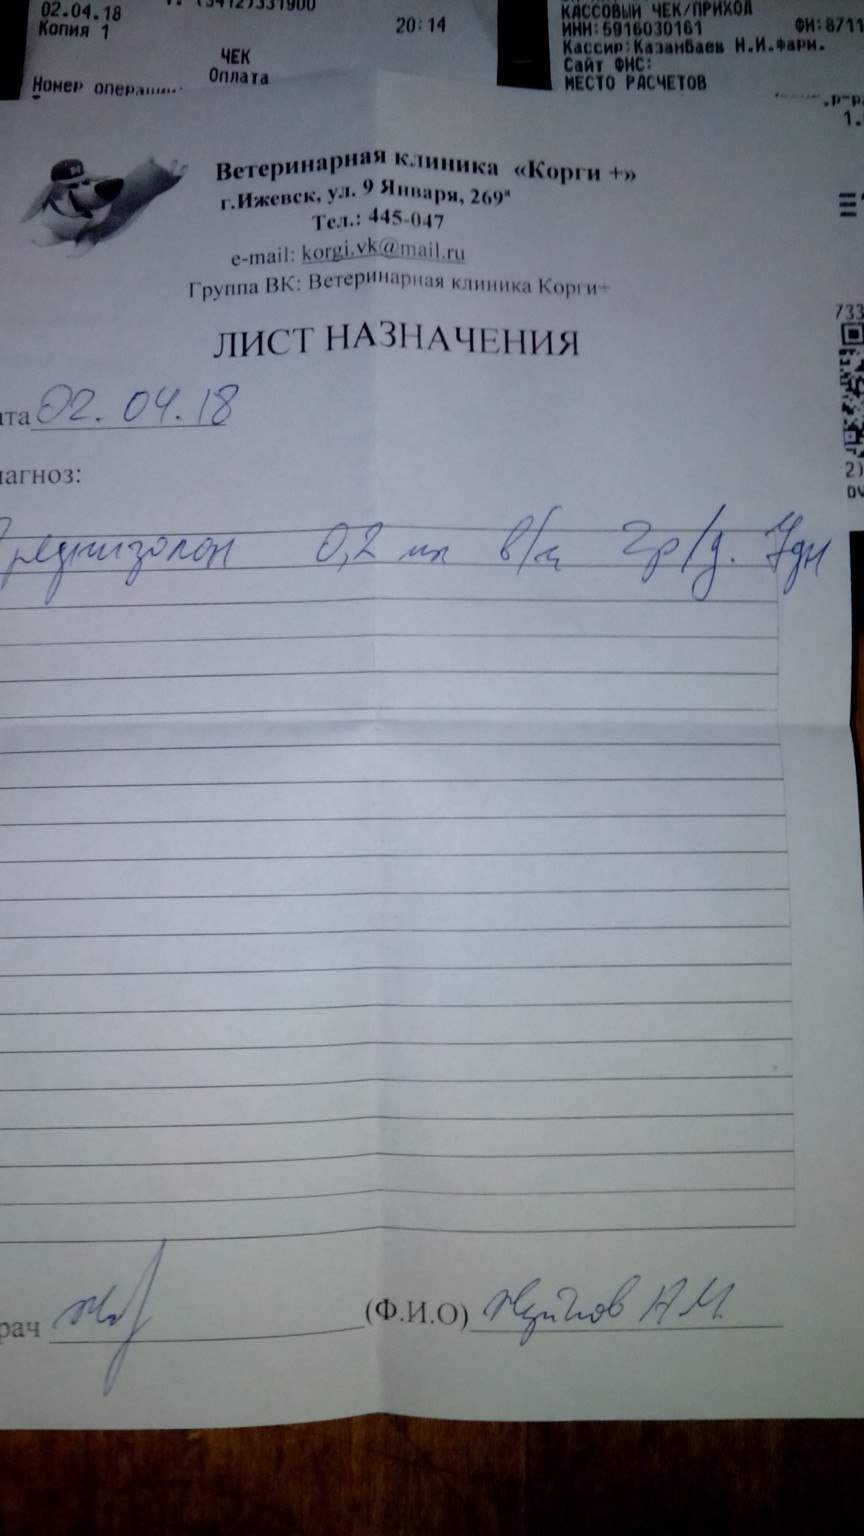 02.04.18
Копия 1
20:14
ЧЕК
Оплата
Номер
КАССОВЫЙ ЧЕК/ПРИХОД
ИНН:5916030161 ФН:8711
Кассир:Казанбаев Н.И.Фарм.
Сайт ФНС:
МЕСТО РАСЧЕТОВ
Ветеринарная клиника «Корги +»
г.Ижевск, ул. 9 Января, 269ª
Тел.: 445-047
e-mail: korgi.vk@mail.ru
Группа ВК: Ветеринарная клиника Корги+
733
ЛИСТ НАЗНАЧЕНИЯ
ата 02.04.18
2)
иагноз:
Преднизолон 0,2 мл в/м 2р/д. 7дн
рач (Ф.И.О) А М